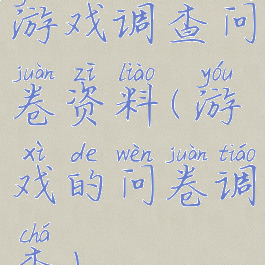 游戏调查问
juàn zī liào yóu
卷资料(游
xì de wèn juàn tiáo
戏的问卷调
chá
查)